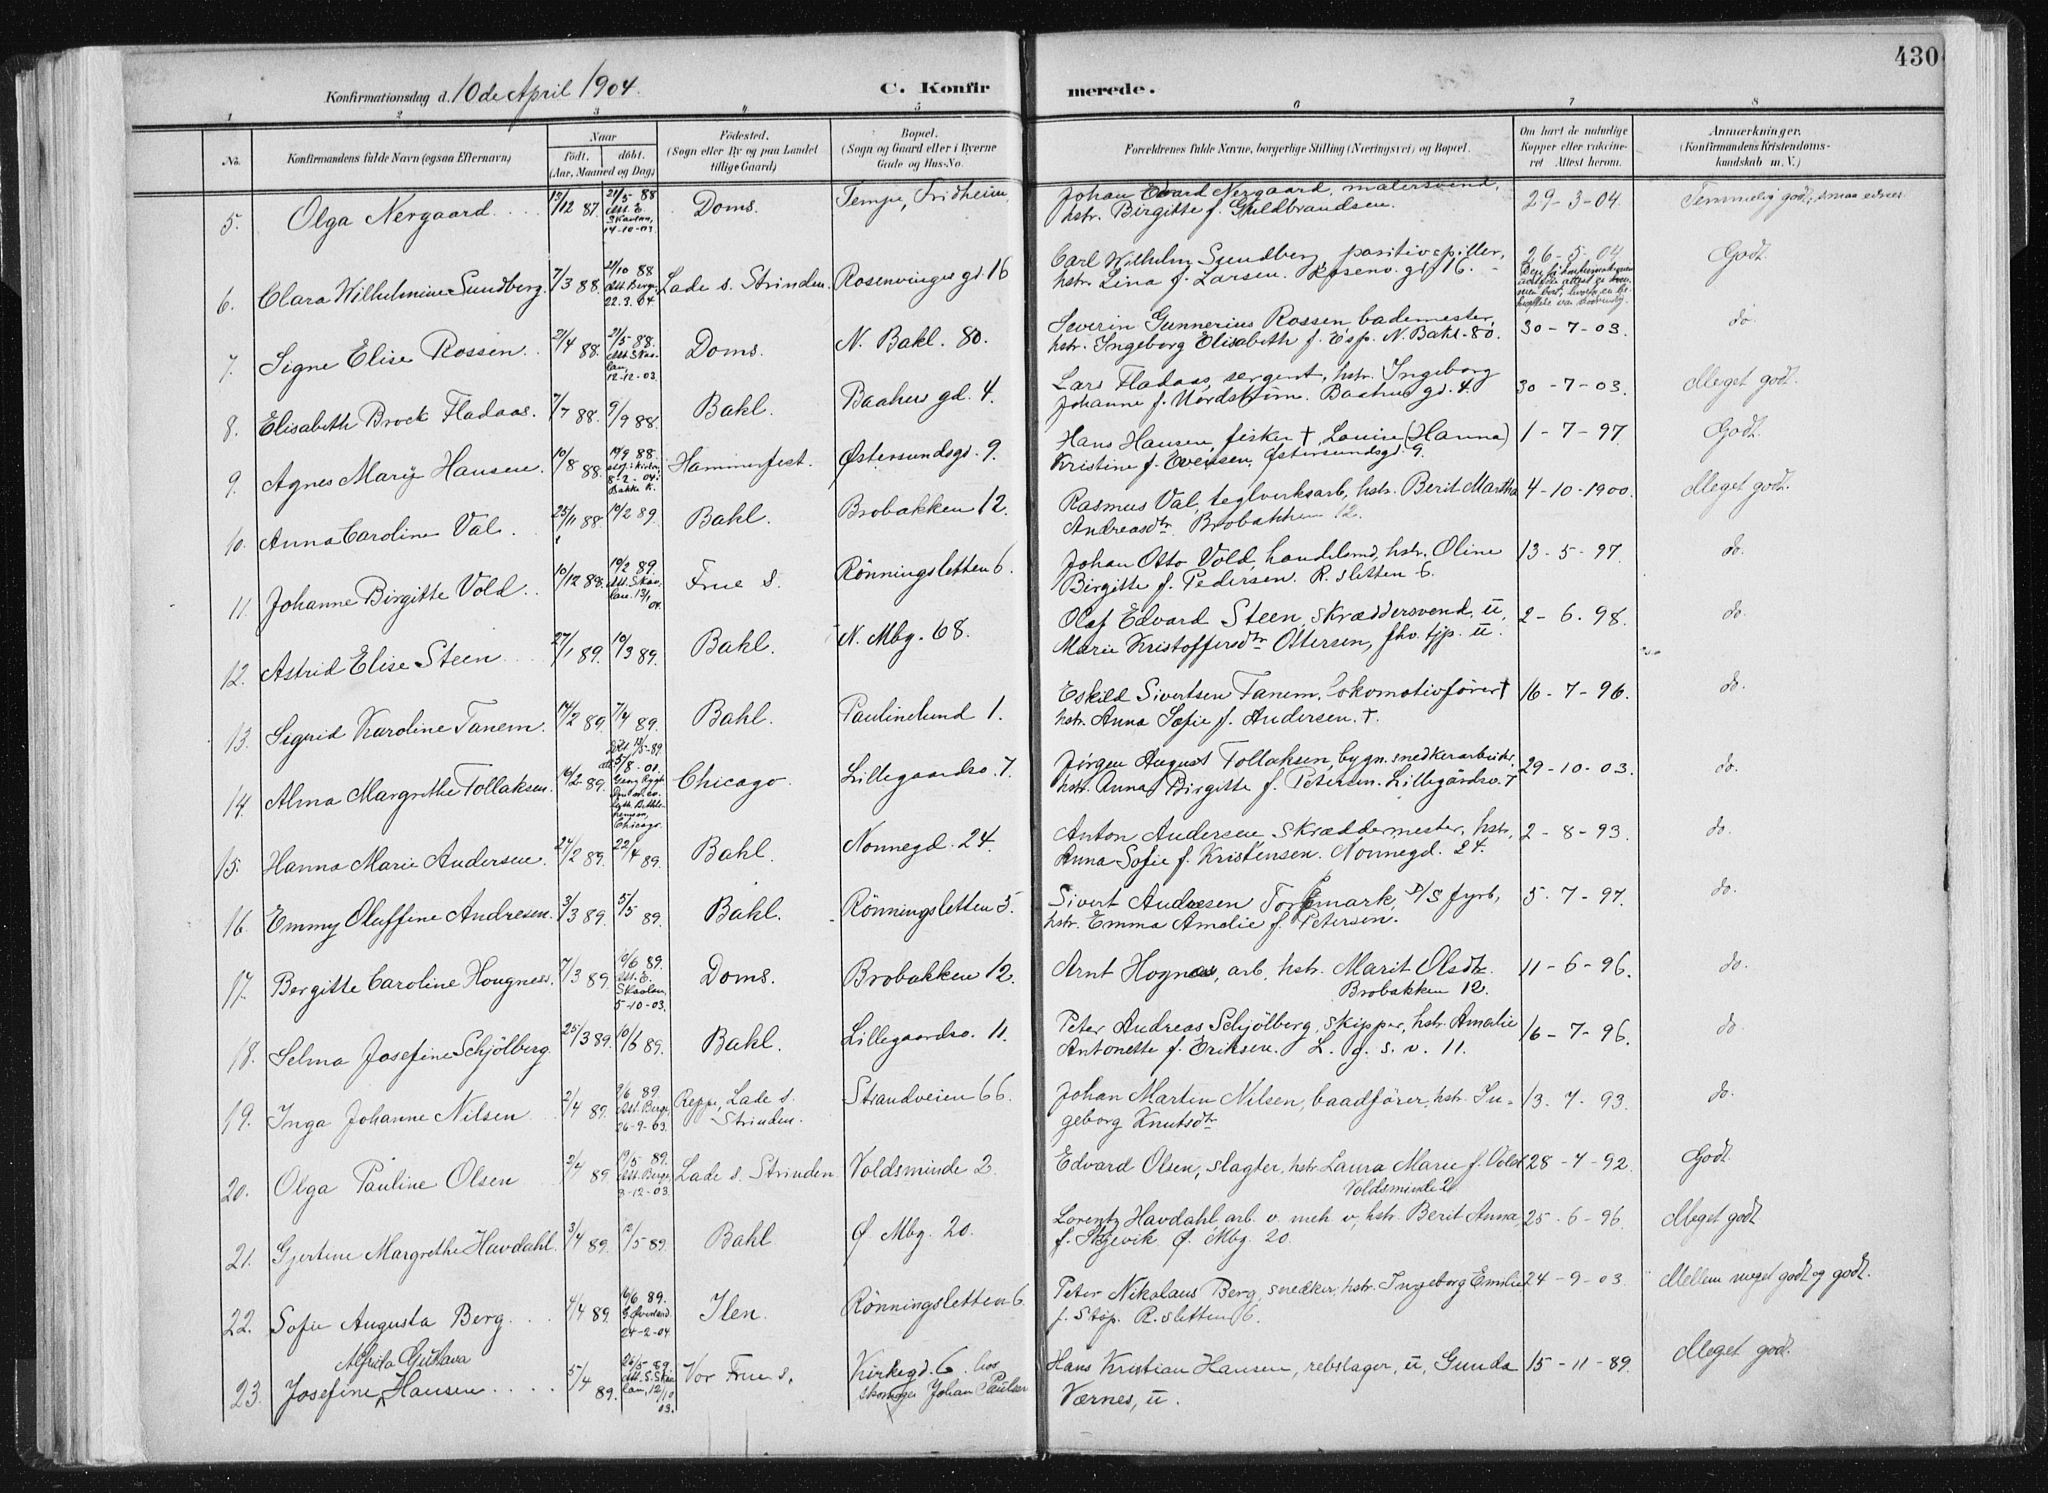 430
Konfirmationsdag d. 10de April 1904.
C. Konfirmerede.
1 2 3 4 5 6 7 8
No. Konfirmandens fulde Navn (egsaa Efternavn) Naar født. døbt. (Aar, Maaned og Dag) Födested. (Sogn eller By og paa Landet tillige Gaard) Bopæl. (Sogn og Gaard eller i Byerne Gade og Hus-No. Forældrenes fulde Navne, borgerlige Stilling (Næringsvei) og Bopæl. Om havt de naturlige Kopper eller vakcineret Attest herom. Anmærkninger. (Konfirmandens Kristendomskundskab m. V.)
5. Olga Nergaard 13/12 87. 21/5 88 Att. E. Skavlan, 14-10-03. Doms. Tempe, Fridheim Johan Edvard Nergaard, malersvend,
hstr. Birgitte f. Guldbrandsen. 29-3-04. Temmelig godt,
6. Clara Wilhelmine Sundberg. 7/3 88. 21/10 88 Att. Berge 22.3.04. Lade s. Strinden. Rosenvinges gd. 16 Carl Wilhelm Sundberg, positivspiller,
hstr. Lina f. Larsen. Rosenv. gd. 16. 26-5-04 Godt.
7. Signe Elise Rossen. 21/4 88. 21/5 88. Att. Skavlan, 12-12-03. Doms. N. Bakl. 80. Severin Gunnerius Rossen, bademester,
hstr. Ingeborg Elisabeth f. Esp. N. Bakl. 80. 30-7-03. do.
8. Elisabeth Brock Fladaas. 7/7 88. 9/9 88. Bakl. Baahus gd. 4. Lars Fladaas, sergent, hstr. Ingeborg
Johanne f. Nordstrøm. Baahus gd. 4. 30-7-03. Meget godt.
9. Agnes Mary Hansen. 10/8 88. 14/9 88. 8-2-04. Bakke K. Hammerfest. Østersundsgd. 9. Hans Hansen, fisker †, Louise (Hanna)
Kristine f. Evensen, Østersundsgd. 9. 1-7-97. Godt.
10. Anna Caroline Val. 25/11 88. 10/2 89. Bakl. Brobakken 12. Rasmus Val, teglverksarb, hstr. Berit Martha
Andreasdtr Brobakken 12. 4-10-1900. Meget godt.
11. Johanne Birgitte Vold. 10/12 88. 10/2 89. Att. Skavlan. 13/1 04. Frue s. Rönningsletten 6. Johan Otto Vold, handelsmd, hstr. Oline
Birgitte f. Pedersen. R. sletten 6. 13-5-97. do.
12. Astrid Elise Steen 27/1 89. 10/3 89. Bakl. N. Mbg. 68. Olaf Edvard Steen, skræddersvend, u,
Marie Kristoffersdtr Ottersen, fhv. tjp. u. 2-6-98. do.
13. Sigrid Karoline Tanem. 14/2 89. 7/4 89. Bakl. Paulinelund 1. Eskild Sivertsen Tanem, Lokomotivfører †
hstr. Anna Sofie f. Andersen. †. 16-7-96. do.
14. Alma Margrethe Tollaksen. 16/2 89. 12/5-89. Att. 5/8-01. Chicago. Chicago. Lillegaardsv. 7. Jørgen August Tollaksen, bygn. snedkerarbeider,
hstr. Anna Birgitte f. Petersen. Lillegårdsv. 7 29-10-03. do.
15. Hanna Marie Andersen. 24/2 89. 22/4 89. Bakl. Nonnegd. 24. Anton Andersen, skræddermester, hstr,
Anna Sofie f. Kristensen. Nonnegd. 24. 2-8-93. do.
16. Emmy Oluffine Andresen. 3/3 89. 5/5 89. Bakl. Rönningsletten 5. Sivert Andresen Torgmark, D/S fyrb,
hstr. Emma Amalie f. Petersen. 5-7-97. do.
17. Bergitte Caroline Hougnes. 7/3 89. 16/6 89. Att. E. Skavlan, 5-10-03. Doms. Brobakken 12. Arnt Hognes, arb, hstr. Marit Olsdtr.
Brobakken 12. 11-6-96. do.
18. Selma Josefine Schjölberg. 25/3 89. 10/6 89. Bakl. Lillegaardsv. 11. Peter Andreas Schjölberg, skipper, hstr. Amalie
Antonette f. Eriksen. L. g. s. v. 11. 16-7-96. do.
19. Inga Johanne Nilsen 2/4 89. 9/6 89. Att. Berge, 26-9-03. Reppe, Lade s. Strinden. Strandveien 66. Johan Martin Nilsen, baadfører, hstr. In-
geborg Knutsdtr 13-7-93. do.
20. Olga Pauline Olsen 2/4 89. 19/5 89. Att. Berge, 3-12-03. Lade s. Strinden Voldsminde 2. Edvard Olsen, slagter, hstr. Laura Marie f. Vold
Voldsminde 2 28-7-92. Godt.
21. Gjertine Margrethe Havdahl. 3/4 89. 12/5 89. Bakl Ø. Mbg. 20. Lorentz Havdahl, arb. v. meh. v, hstr. Berit Anna,
f. Skjevik. Ø. Mbg. 20. 25-6-96. Meget godt
22. Sofie Augusta Berg. 4/4 89. 16/6 89. 24-2-04 Ilen. Rönningsletten 6. Peter Nikolaus Berg, snedker, hstr. Ingeborg Emilie
f. Stöp. R. sletten 6. 24-9-03. Mellem meget godt og godt.
Alfrida Gustava
23. Josefine Hansen 5/4 89. 26/5 89. Att. S. Skavlan, 12/10 03. Vor Frue s. Kirkegd. 6. hos skomager Johan Paulsen Hans Kristian Hansen, rebslager, u, Gunda
Værnes, u. 15-11-89 Meget god.